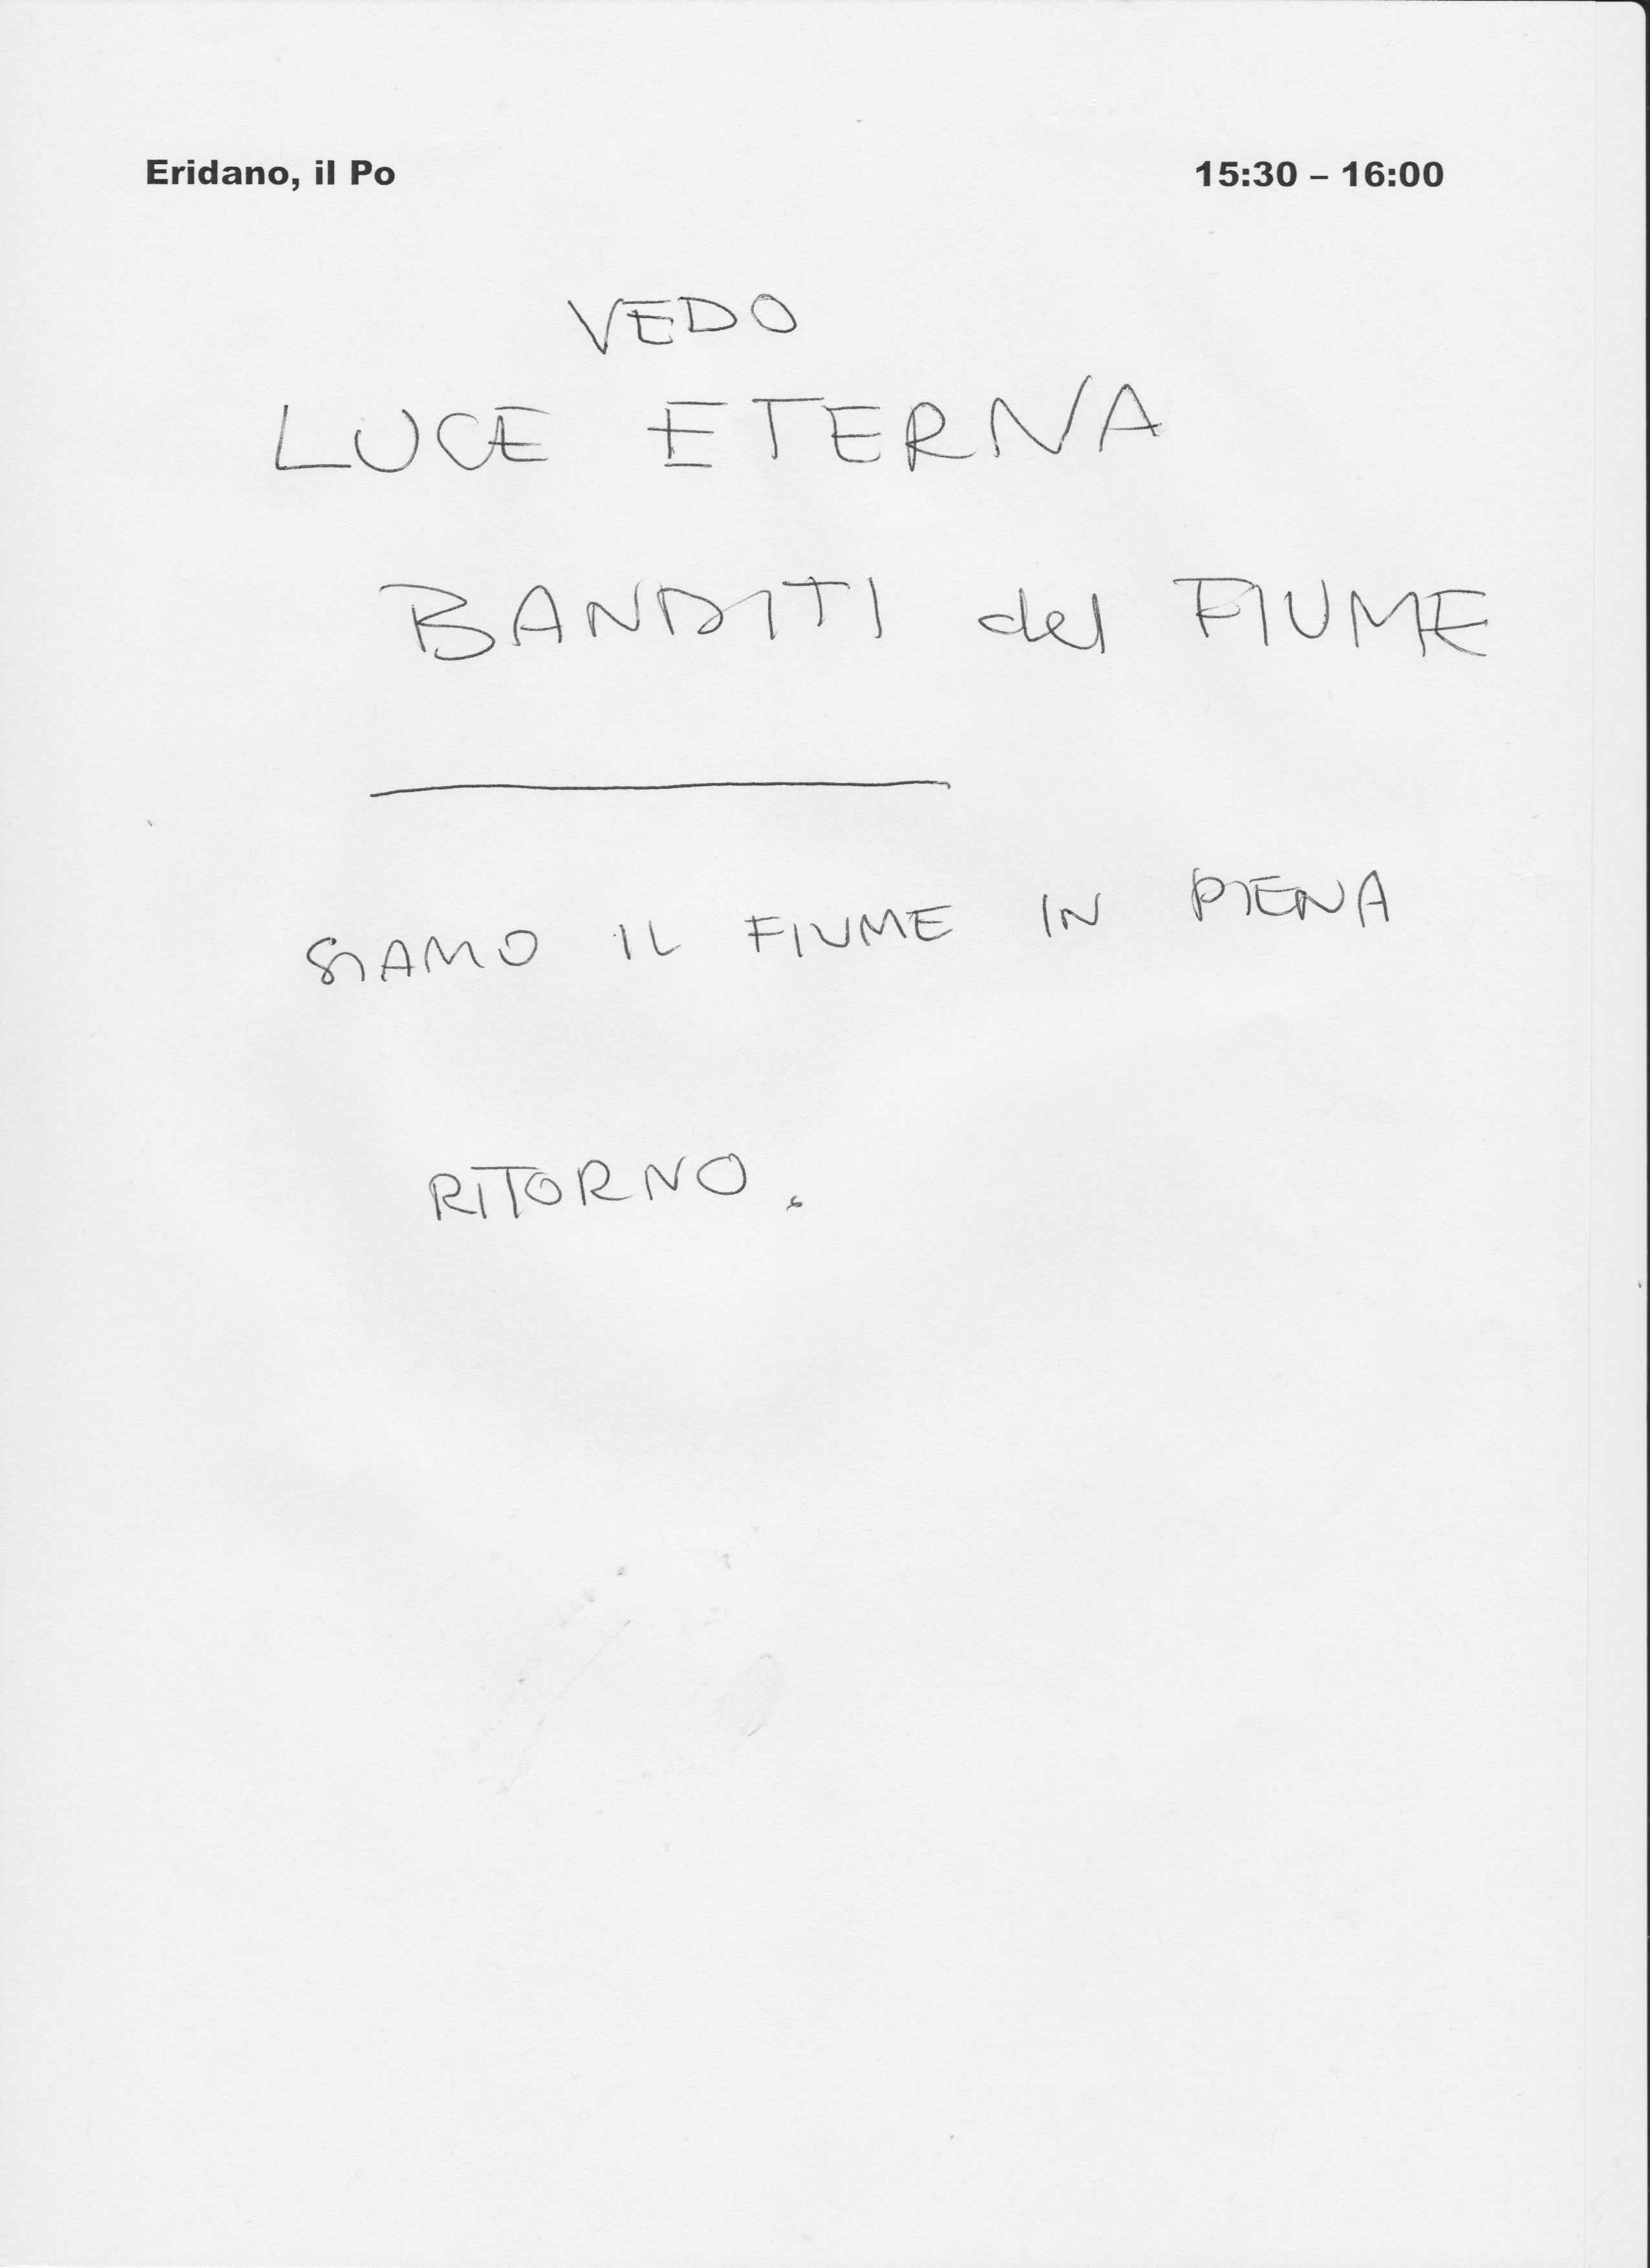 Eridano, il Po 15:30 – 16:00
VEDO
LUCE ETERNA
BANDITI del FIUME
SIAMO IL FIUME IN PIENA
RITORNO.